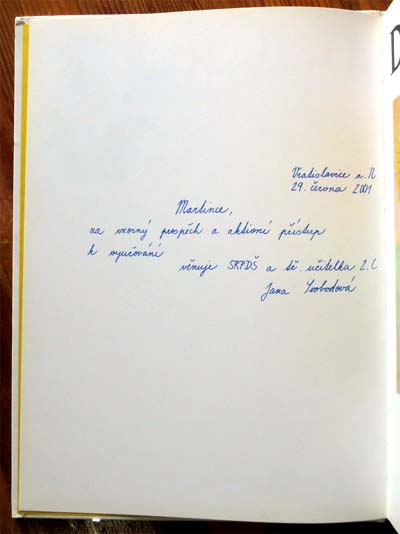 Vratislavice n. N
29. června 2001
Martince,
za vzorný prospěch a aktivní přístup
k vyučování
věnuje SRPDŠ a tř. učitelka 2. C
Jana Svobodová
D